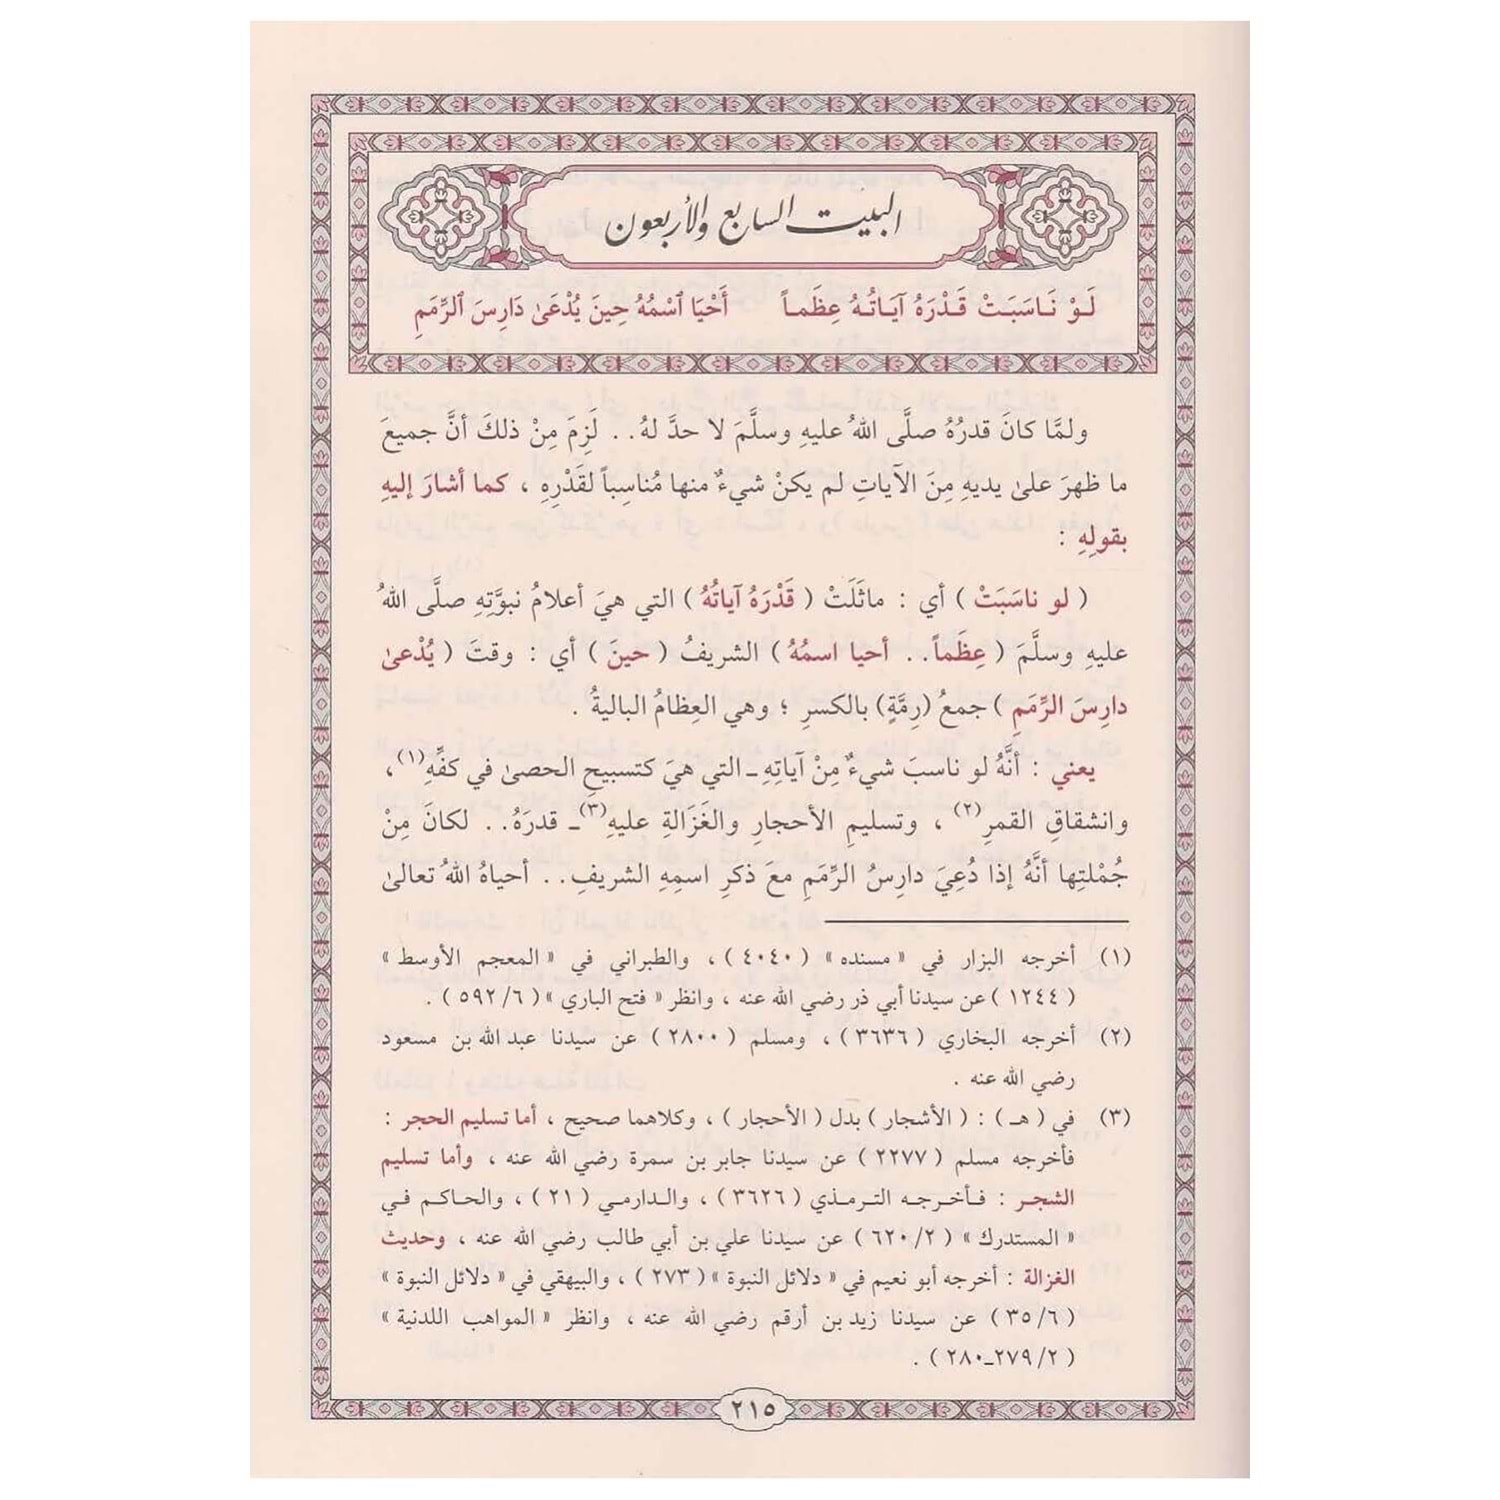 البيت السابع والأربعون
لَوْ نَاسَبَتْ قَدْرَهُ آيَاتُهُ عِظَماً أَحْيَا ٱسْمُهُ حِينَ يُدْعَىٰ دَارِسَ ٱلرِّمَمِ
ولمَّا كانَ قدرُهُ صلَّى اللهُ عليهِ وسلَّمَ لا حدَّ لهُ.. لَزِمَ مِنْ ذلكَ أنَّ جميعَ
ما ظهرَ علىٰ يديهِ مِنَ الآياتِ لم يكنْ شيءٌ منها مُناسِباً لقَدْرِهِ ، كما أشارَ إليهِ
بقولِهِ :
( لو ناسَبَتْ ) أي : ماثَلَتْ ( قَدْرَهُ آياتُهُ ) التي هيَ أعلامُ نبوَّتِهِ صلَّى اللهُ
عليهِ وسلَّمَ ( عِظَماً.. أحيا اسمُهُ ) الشريفُ ( حينَ ) أي : وقتَ ( يُدْعىٰ
دارِسَ الرِّمَمِ ) جمعُ (رِمَّةٍ) بالكسرِ ؛ وهي العِظامُ الباليةُ .
يعني : أنَّهُ لو ناسبَ شيءٌ مِنْ آياتِهِ ـ التي هيَ كتسبيحِ الحصىٰ في كفِّهِ(١)،
وانشقاقِ القمرِ(٢) ، وتسليمِ الأحجارِ والغَزَالةِ عليهِ(٣)ـ قدرَهُ.. لكانَ مِنْ
جُمْلتِها أنَّهُ إذا دُعِيَ دارِسُ الرِّمَمِ معَ ذكرِ اسمِهِ الشريفِ.. أحياهُ اللهُ تعالىٰ
(١) أخرجه البزار في « مسنده » ( ٤٠٤٠ ) ، والطبراني في « المعجم الأوسط »
( ١٢٤٤ ) عن سيدنا أبي ذر رضي الله عنه ، وانظر « فتح الباري » ( ٦/ ٥٩٢ ) .
(٢) أخرجه البخاري ( ٣٦٣٦ ) ، ومسلم ( ٢٨٠٠ ) عن سيدنا عبد الله بن مسعود
رضي الله عنه .
(٣) في ( هـ ) : ( الأشجار ) بدل ( الأحجار ) ، وكلاهما صحيح ، أما تسليم الحجر :
فأخرجه مسلم ( ٢٢٧٧ ) عن سيدنا جابر بن سمرة رضي الله عنه ، وأما تسليم
الشجر : فأخرجه الترمذي ( ٣٦٢٦ ) ، والدارمي ( ٢١ ) ، والحاكم في
« المستدرك » ( ٢/ ٦٢٠ ) عن سيدنا علي بن أبي طالب رضي الله عنه ، وحديث
الغزالة : أخرجه أبو نعيم في « دلائل النبوة » ( ٢٧٣ ) ، والبيهقي في « دلائل النبوة »
( ٦/ ٣٥ ) عن سيدنا زيد بن أرقم رضي الله عنه ، وانظر « المواهب اللدنية »
( ٢/ ٢٧٩ـ٢٨٠ ) .
٢١٥